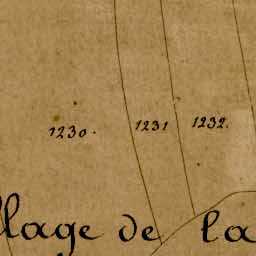 1230. 1231 1232.
llage de la